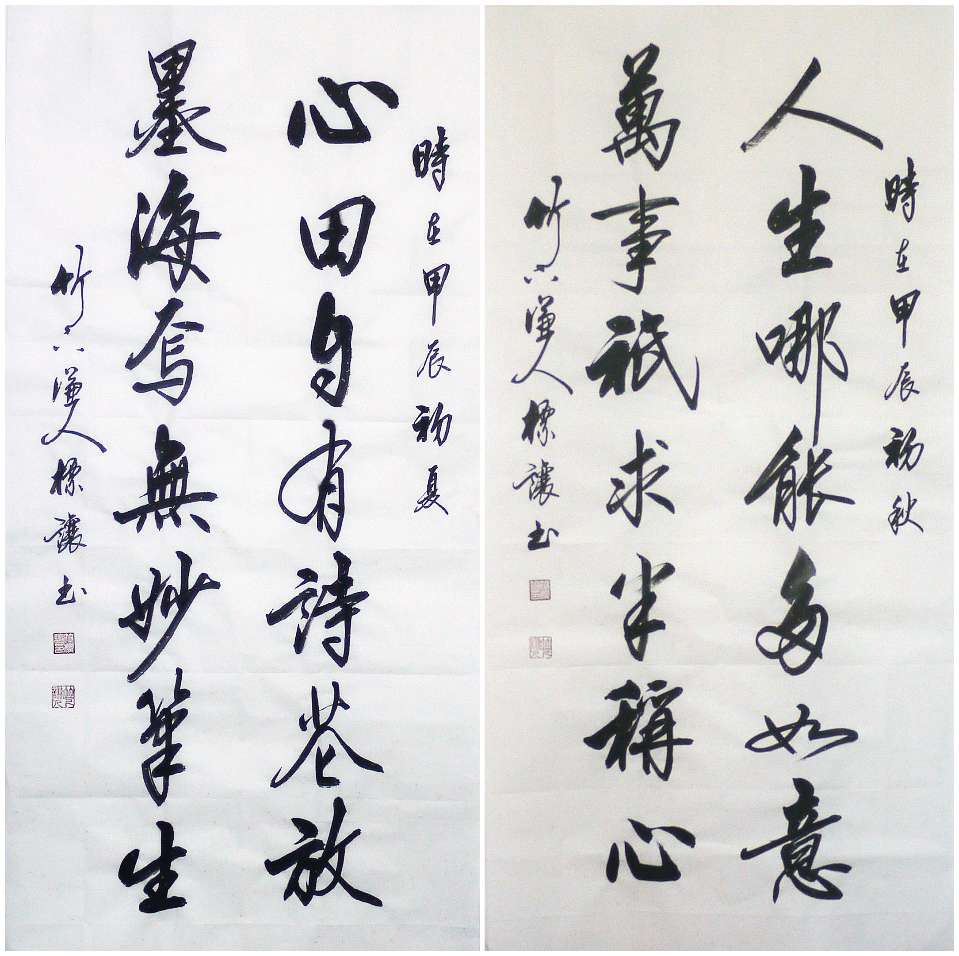 時在甲辰初秋
人生哪能多如意
萬事祇求半稱心
竹下謙人標讓书
時在甲辰初夏
心田自有詩花放
墨海焉無妙筆生
竹下謙人標讓书